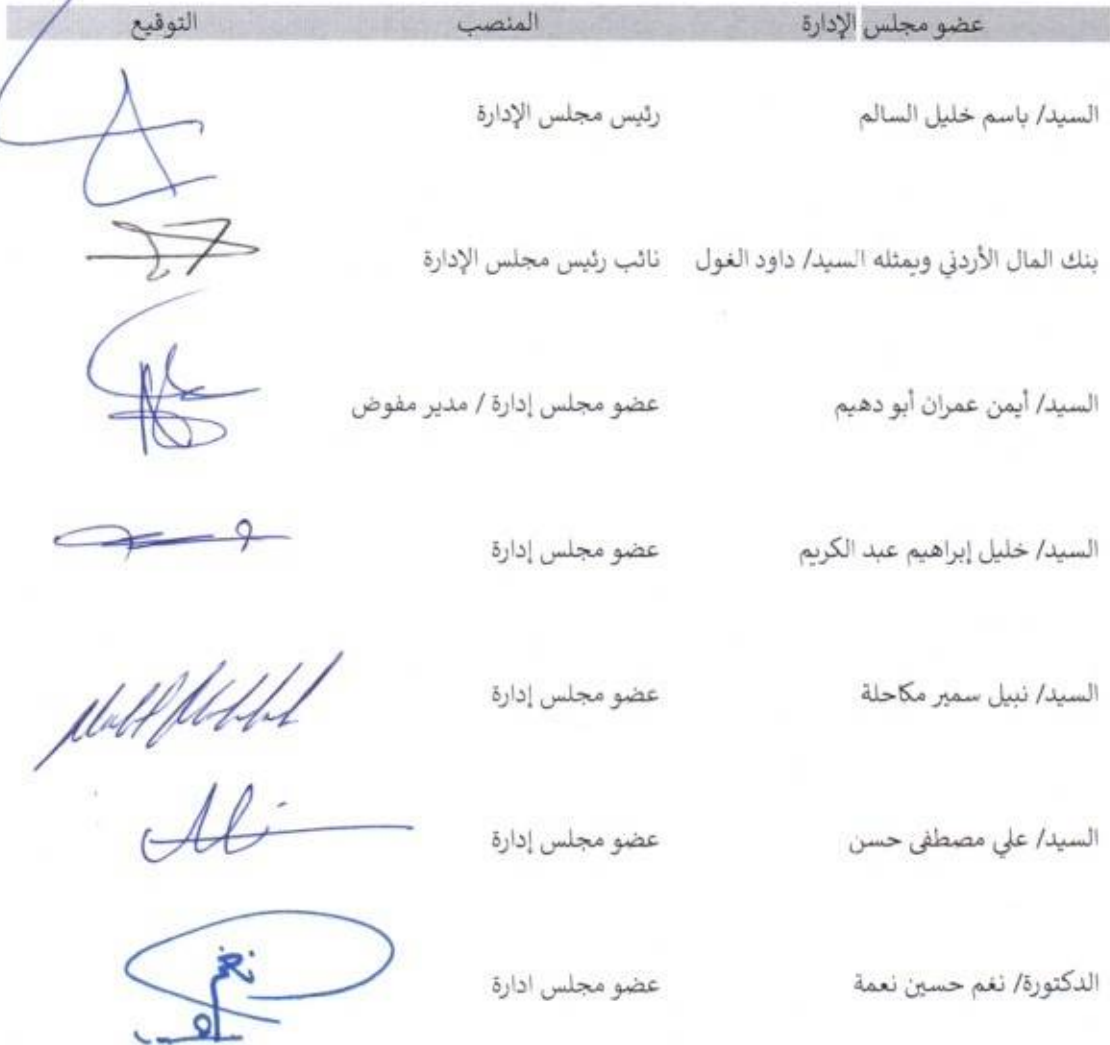 عضو مجلس الإدارة المنصب التوقيع
السيد/ باسم خليل السالم رئيس مجلس الإدارة
بنك المال الأردني ويمثله السيد/ داود الغول نائب رئيس مجلس الإدارة
السيد/ أيمن عمران أبو دهيم عضو مجلس إدارة / مدير مفوض
السيد/ خليل إبراهيم عبد الكريم عضو مجلس إدارة
السيد/ نبيل سمير مكاحلة عضو مجلس إدارة
السيد/ علي مصطفى حسن عضو مجلس إدارة
الدكتورة/ نغم حسين نعمة عضو مجلس ادارة